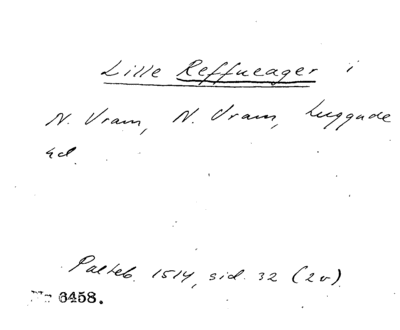 Lille Reffueager i
N. Vram, N. Vram, Luggude
hd.
Palteb. 1514, sid. 32 (2v)
Nr 6458.